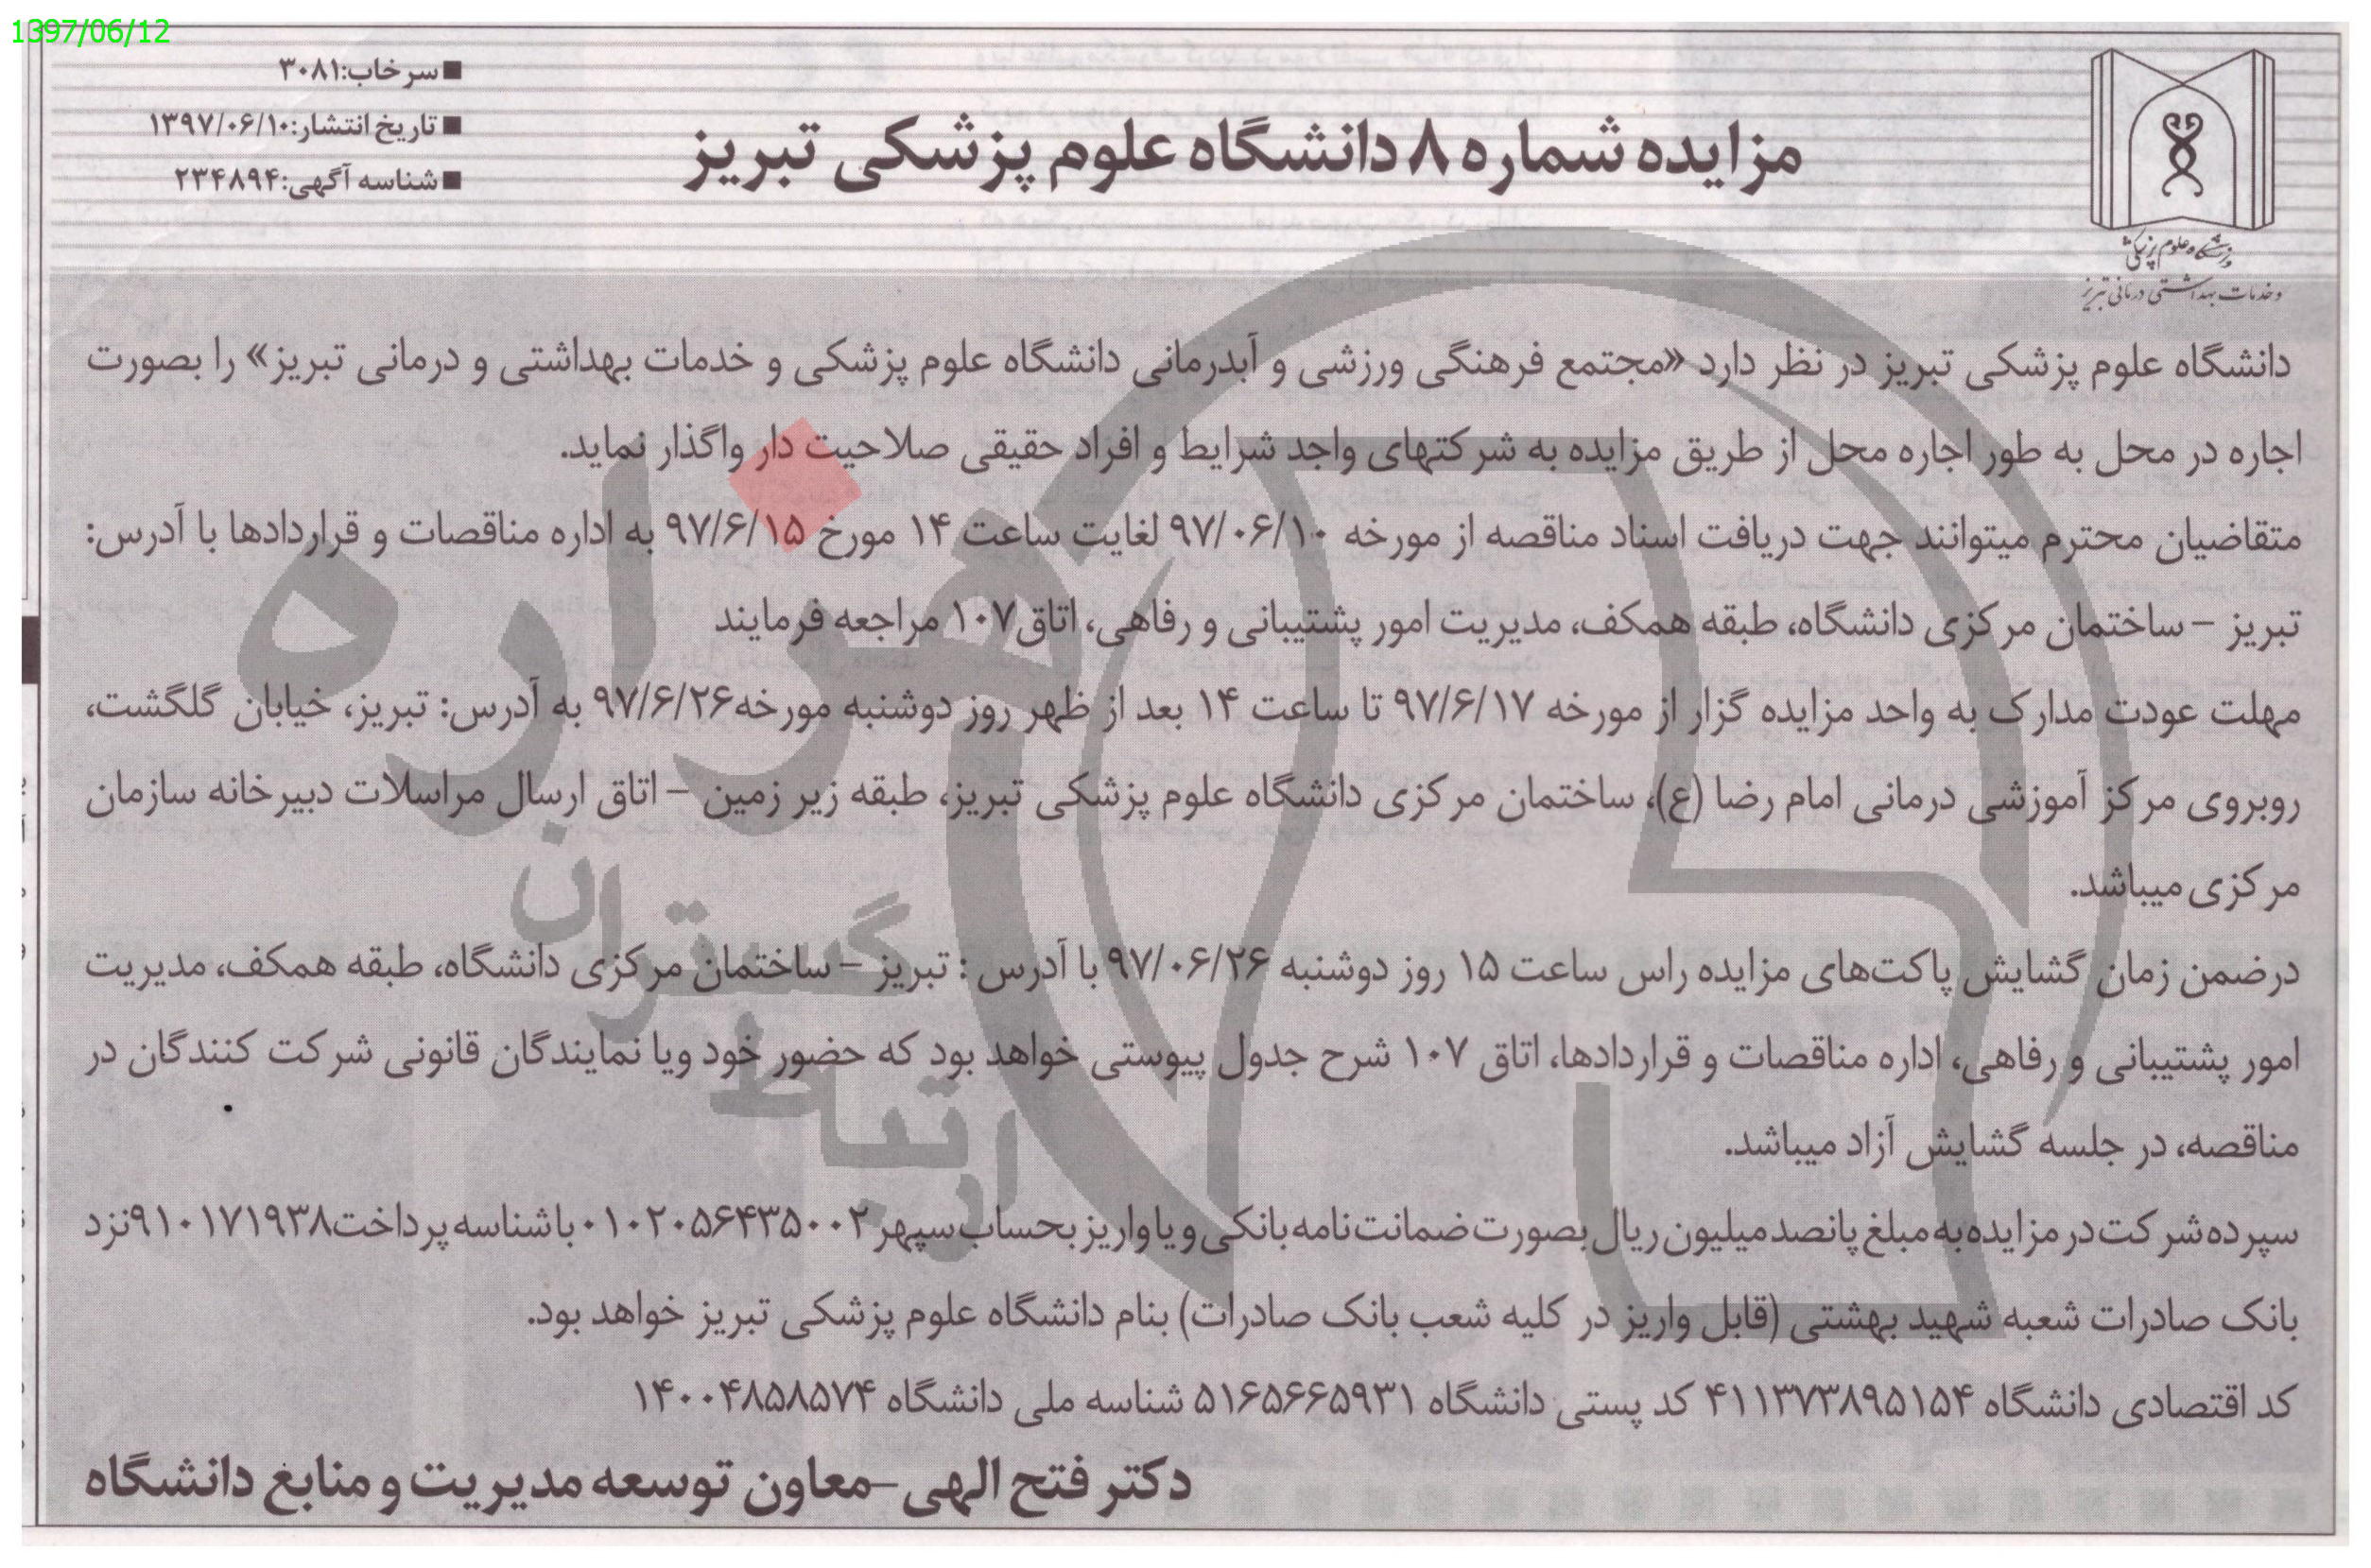 1397/06/12
■ سرخاب:۳۰۸۱
■ تاریخ انتشار:۱۳۹۷/۰۶/۱۰
■ شناسه آگهی:۲۳۴۸۹۴
مزایده شماره ۸ دانشگاه علوم پزشکی تبریز
دانشگاه علوم پزشکی
و خدمات بهداشتی درمانی تبریز
دانشگاه علوم پزشکی تبریز در نظر دارد «مجتمع فرهنگی ورزشی و آبدرمانی دانشگاه علوم پزشکی و خدمات بهداشتی و درمانی تبریز» را بصورت
اجاره در محل به طور اجاره محل از طریق مزایده به شرکتهای واجد شرایط و افراد حقیقی صلاحیت دار واگذار نماید.
متقاضیان محترم میتوانند جهت دریافت اسناد مناقصه از مورخه ۹۷/۰۶/۱۰ لغایت ساعت ۱۴ مورخ ۹۷/۶/۱۵ به اداره مناقصات و قراردادها با آدرس:
تبریز – ساختمان مرکزی دانشگاه، طبقه همکف، مدیریت امور پشتیبانی و رفاهی، اتاق۱۰۷ مراجعه فرمایند
مهلت عودت مدارک به واحد مزایده گزار از مورخه ۹۷/۶/۱۷ تا ساعت ۱۴ بعد از ظهر روز دوشنبه مورخه۹۷/۶/۲۶ به آدرس: تبریز، خیابان گلگشت،
روبروی مرکز آموزشی درمانی امام رضا (ع)، ساختمان مرکزی دانشگاه علوم پزشکی تبریز، طبقه زیر زمین – اتاق ارسال مراسلات دبیرخانه سازمان
مرکزی میباشد.
درضمن زمان گشایش پاکت‌های مزایده راس ساعت ۱۵ روز دوشنبه ۹۷/۰۶/۲۶ با آدرس : تبریز – ساختمان مرکزی دانشگاه، طبقه همکف، مدیریت
امور پشتیبانی و رفاهی، اداره مناقصات و قراردادها، اتاق ۱۰۷ شرح جدول پیوستی خواهد بود که حضور خود ویا نمایندگان قانونی شرکت کنندگان در
مناقصه، در جلسه گشایش آزاد میباشد.
سپرده شرکت در مزایده به مبلغ پانصد میلیون ریال بصورت ضمانت نامه بانکی و یا واریز بحساب سپهر ۰۱۰۲۰۵۶۴۳۵۰۰۲ با شناسه پرداخت۹۱۰۱۷۱۹۳۸نزد
بانک صادرات شعبه شهید بهشتی (قابل واریز در کلیه شعب بانک صادرات) بنام دانشگاه علوم پزشکی تبریز خواهد بود.
کد اقتصادی دانشگاه ۴۱۱۳۷۳۸۹۵۱۵۴ کد پستی دانشگاه ۵۱۶۵۶۶۵۹۳۱ شناسه ملی دانشگاه ۱۴۰۰۴۸۵۸۵۷۴
دکتر فتح الهی –معاون توسعه مدیریت و منابغ دانشگاه
هزاره
گستران
ارتباط